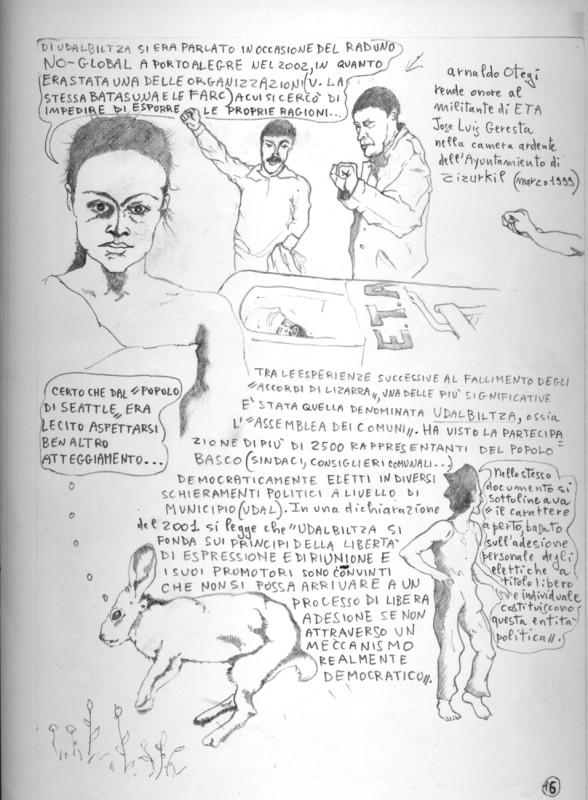 DI UDALBILTZA SI ERA PARLATO IN OCCASIONE DEL RADUNO
NO-GLOBAL A PORTO ALEGRE NEL 2002, IN QUANTO
ERA STATA UNA DELLE ORGANIZZAZIONI (V. LA
STESSA BATASUNA E LE FARC) A CUI SI CERCÒ DI
IMPEDIRE DI ESPORRE LE PROPRIE RAGIONI...
arnaldo Otegi
rende onore al
militante di ETA
Jose Luis Geresta
nella camera ardente
dell'Ayuntamiento di
Zizurkil (marzo 1999)
E.T.A
CERTO CHE DAL "POPOLO
DI SEATTLE" ERA
LECITO ASPETTARSI
BEN ALTRO
ATTEGGIAMENTO...
TRA LE ESPERIENZE SUCCESSIVE AL FALLIMENTO DEGLI
"ACCORDI DI LIZARRA", UNA DELLE PIU' SIGNIFICATIVE
E' STATA QUELLA DENOMINATA UDALBILTZA, ossia
L'"ASSEMBLEA DEI COMUNI". HA VISTO LA PARTECIPA=
ZIONE DI PIU' DI 2500 RAPPRESENTANTI DEL POPOLO
BASCO (SINDACI, CONSIGLIERI COMUNALI...)
DEMOCRATICAMENTE ELETTI IN DIVERSI
SCHIERAMENTI POLITICI A LIVELLO DI
MUNICIPIO (UDAL). In una dichiarazione
del 2001 si legge che "UDALBILTZA SI
FONDA SUI PRINCIPI DELLA LIBERTA'
DI ESPRESSIONE E DI RIUNIONE E
I SUOI PROMOTORI SONO CONVINTI
CHE NON SI POSSA ARRIVARE A UN
PROCESSO DI LIBERA
ADESIONE SE NON
ATTRAVERSO UN
MECCANISMO
REALMENTE
DEMOCRATICO".
Nello stesso
documento si
sottolineava
"il carattere
aperto, basato
sull'adesione
personale degli
eletti che a
titolo libero
e individuale
costituiscono
questa entita'
politica".
16